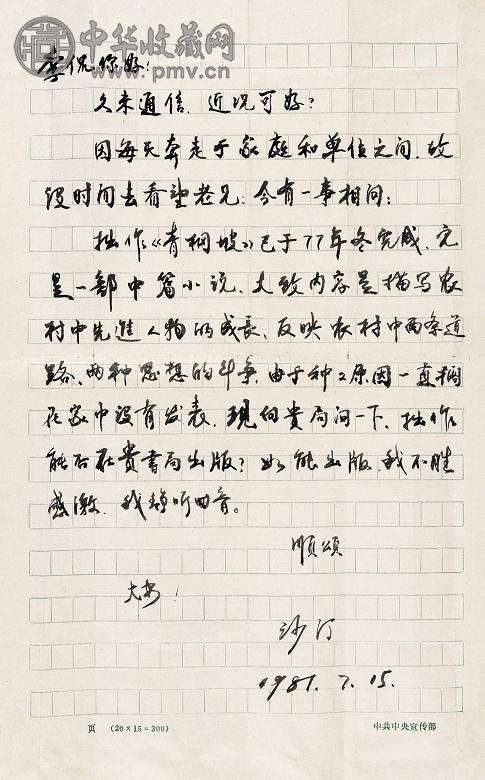 中华收藏网
www.pmv.cn
侃你好！
久未通信，近况可好？
因每天奔走于家庭和单位之间，故
没时间去看望老兄，今有一事相问：
拙作《青㭎坡》已于77年冬完成，完
是一部中篇小说，大致内容是描写农
村中先進人物的成長、反映农村中两条道
路、两种思想的斗争，由于种々原因一直搁
在家中没有发表，現向貴局问一下，拙作
能否在貴書局出版？如能出版，我不胜
感激，我静听回音。
順頌
大安！
沙汀
1981.7.15.
页 (20×15=300) 中共中央宣传部